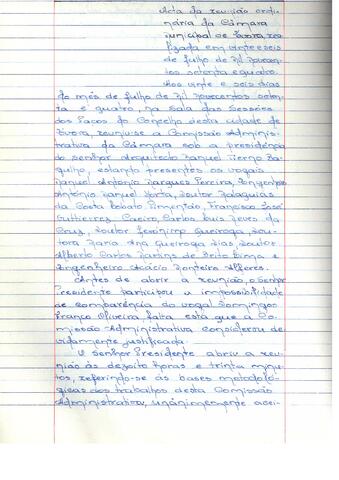 Acta da reunião ordi-
nária da Câmara
Municipal de Évora, rea-
lizada em vinte e seis
de Julho de Mil Novecen-
tos setenta e quatro.
Aos vinte e seis dias
do mês de Julho de mil novecentos seten-
ta e quatro, na Sala das Sessões
dos Paços do Concelho desta cidade de
Évora, reuniu-se a Comissão Adminis-
trativa da Câmara sob a presidência
do Senhor Arquitecto Manuel
estando presentes os vogais
Manuel Antonio Marques Pereira, Engenheiro
António Manuel Doutor
da Costa Lobato Pimentão, Francisco José
Caeiro, Carlos Luis Neves da
Cruz, Doutor Jerónimo Queiroga, Dou-
tora Maria Ana Queiroga Dias, Doutor
Alberto Carlos Martins de Brito Lima e
Engenheiro Acácio Monteiro Alferes.
Antes de abrir a reunião o Senhor
Presidente participou a impossibilidade
de comparência do vogal Domingos
Franco Oliveira, falta esta que a Co-
missão Administrativa considerou de-
vidamente justificada.
O Senhor Presidente abriu a reu-
nião às dezoito horas e trinta minu-
tos, referindo-se às bases metodoló-
gicas dos trabalhos desta Comissão
Administrativa, unânimemente acei-